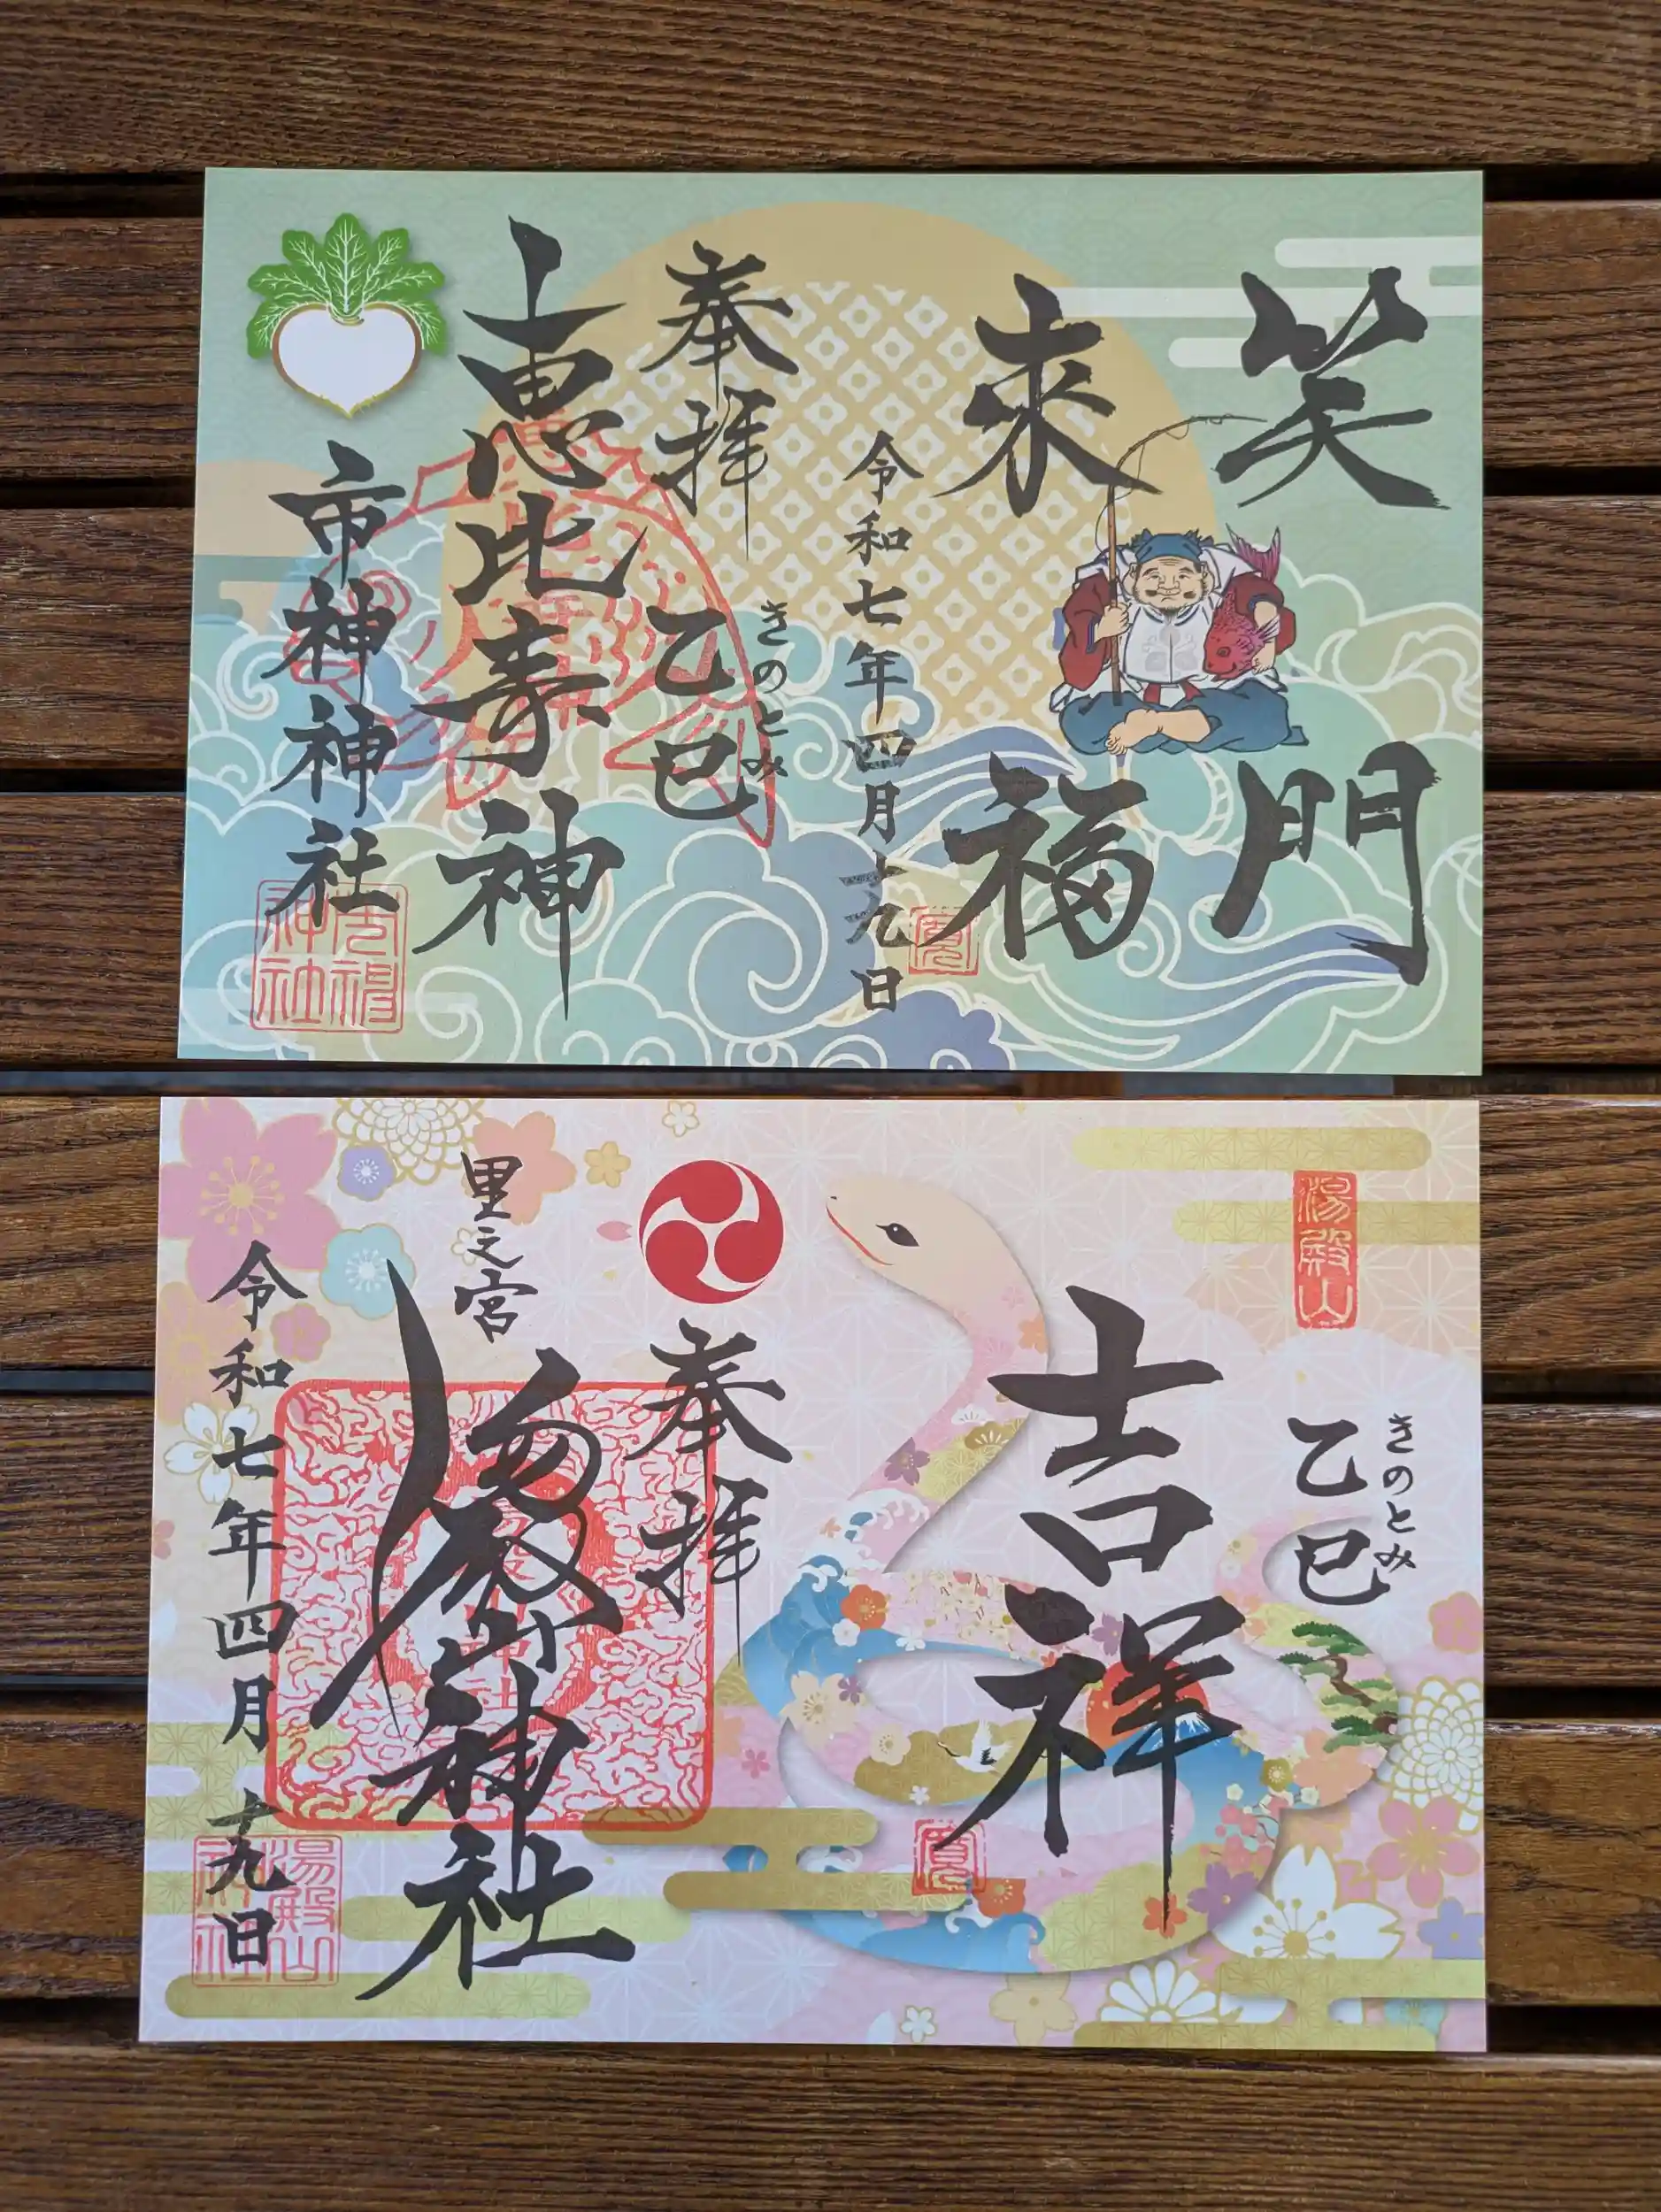 笑門
来福
令和七年四月十九日
奉拝
乙巳
きのとみ
恵比寿神
市神神社
市神神社
湯殿山
乙巳
きのとみ
吉祥
奉拝
里之宮
湯殿山神社
令和七年四月十九日
湯殿山神社